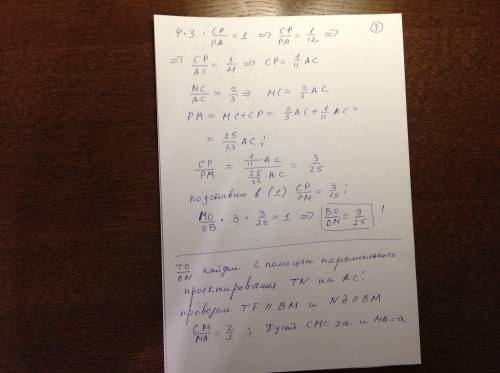 ③
4·3·CP/PA = 1 ⇒ CP/PA = 1/12 ⇒
⇒ CP/AC = 1/11 ⇒ CP = 1/11 AC
MC/AC = 2/3 ⇒ MC = 2/3 AC
PM = MC + CP = 2/3 AC + 1/11 AC =
= 25/33 AC;
CP/PM = (1/11·AC)/(25/33·AC) = 3/25
подставим в (1) CP/PM = 3/25;
MO/OB · 3 · 3/25 = 1 ⇒ BO/OM = 9/25 !
TO/ON найдем с помощью параллельного
проектирования TN на AC!
проведем TF || BM и NZ || BM
CM/MA = 2/1 ; Пусть CM = 2a и MA = a